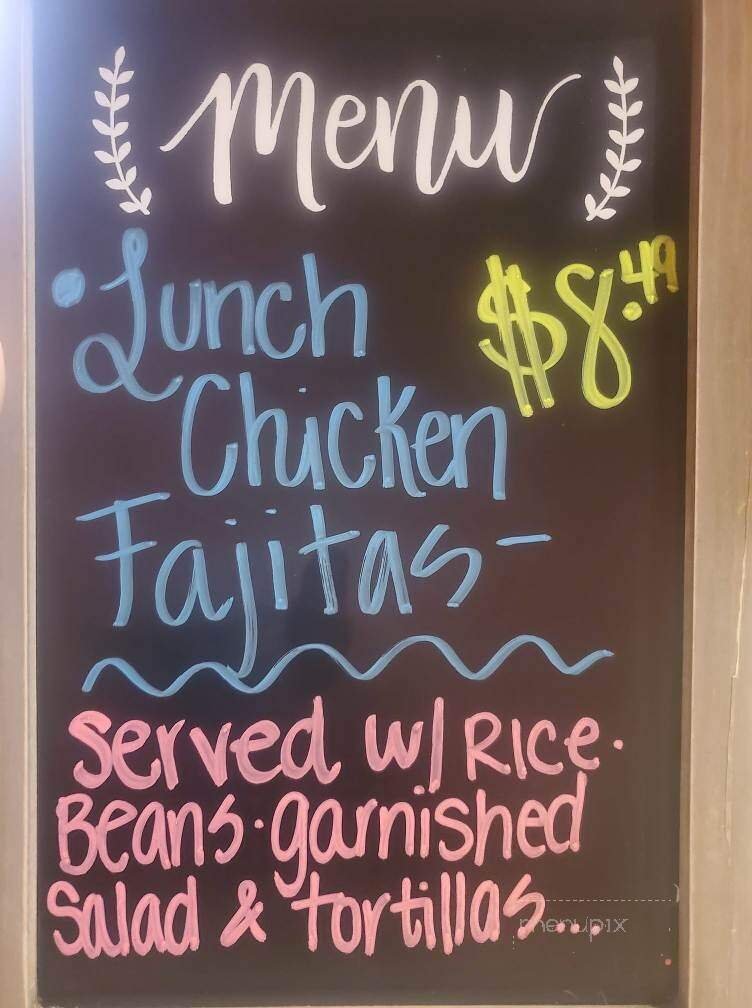 Menu
• Lunch $8.49
Chicken
Fajitas-
Served w/ Rice·
Beans·garnished
Salad & tortillas...
menupix